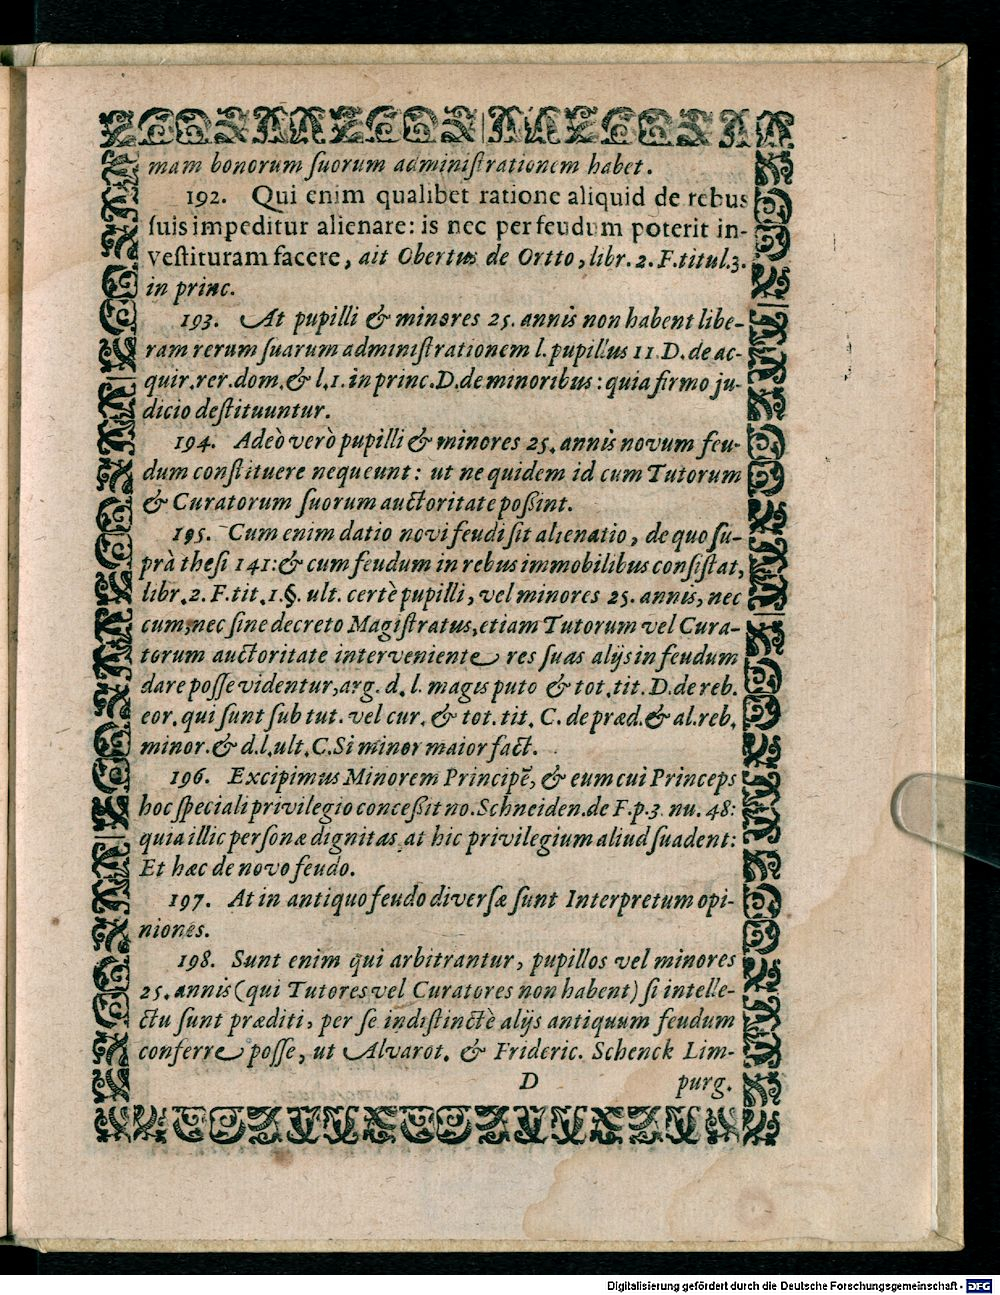 mam bonorum ſuorum adminiſtrationem habet.
192. Qui enim qualibet ratione aliquid de rebus
ſuis impeditur alienare: is nec per feudum poterit in-
veſtituram facere, ait Obertus de Ortto, libr. 2. F. titul. 3.
in princ.
193. At pupilli & minores 25. annis non habent libe-
ram rerum ſuarum adminiſtrationem l. pupillus 11. D. de ac-
quir. rer. dom. & l. 1. in princ. D. de minoribus: quia firmo ju-
dicio deſtituuntur.
194. Adeò verò pupilli & minores 25. annis novum feu-
dum conſtituere nequeunt: ut ne quidem id cum Tutorum
& Curatorum ſuorum auctoritate poßint.
195. Cum enim datio novi feudi ſit alienatio, de quo ſu-
prà theſi 141: & cum feudum in rebus immobilibus conſiſtat,
libr. 2. F. tit. 1. §. ult. certè pupilli, vel minores 25. annis, nec
cum, nec ſine decreto Magiſtratus, etiam Tutorum vel Cura-
torum auctoritate interveniente res ſuas alijs in feudum
dare poſſe videntur, arg. d. l. magis puto & tot. tit. D. de reb.
eor. qui ſunt ſub tut. vel cur. & tot. tit. C. de præd. & al. reb.
minor. & d. l. ult. C. Si minor maior fact.
196. Excipimus Minorem Principẽ, & eum cui Princeps
hoc ſpeciali privilegio conceßit no. Schneiden. de F. p. 3. nu. 48:
quia illic perſonæ dignitas, at hic privilegium aliud ſuadent:
Et hæc de novo feudo.
197. At in antiquo feudo diverſæ ſunt Interpretum opi-
niones.
198. Sunt enim qui arbitrantur, pupillos vel minores
25. annis (qui Tutores vel Curatores non habent) ſi intelle-
ctu ſunt præditi, per ſe indiſtinctè alijs antiquum feudum
conferre poſſe, ut Alvarot. & Frideric. Schenck Lim-
D purg.
Digitalisierung gefördert durch die Deutsche Forschungsgemeinschaft - DFG